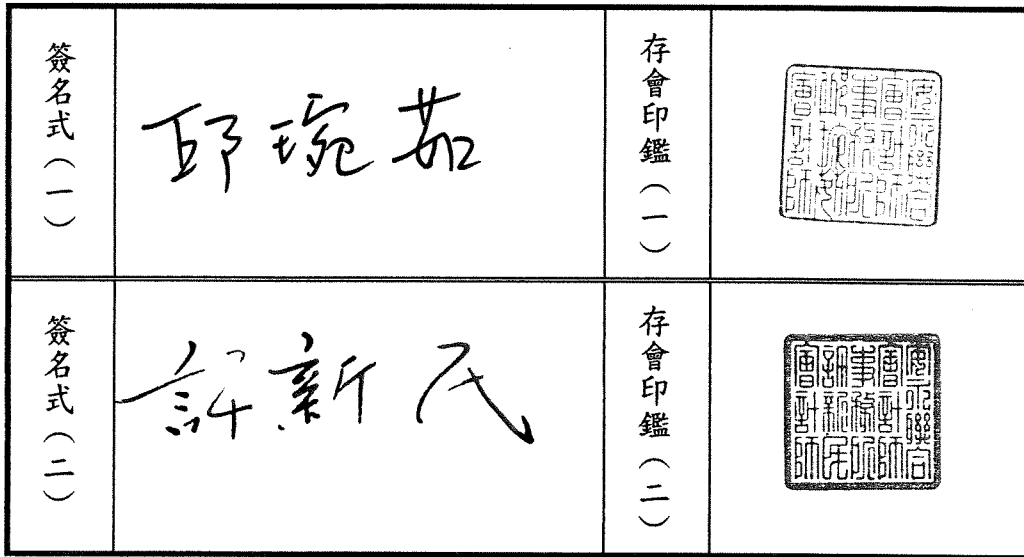 簽名式（一）
邱琬茹
存會印鑑（一）
安永聯合
會計師
事務所
邱琬茹
會計師
簽名式（二）
許新民
存會印鑑（二）
安永聯合
會計師
事務所
許新民
會計師